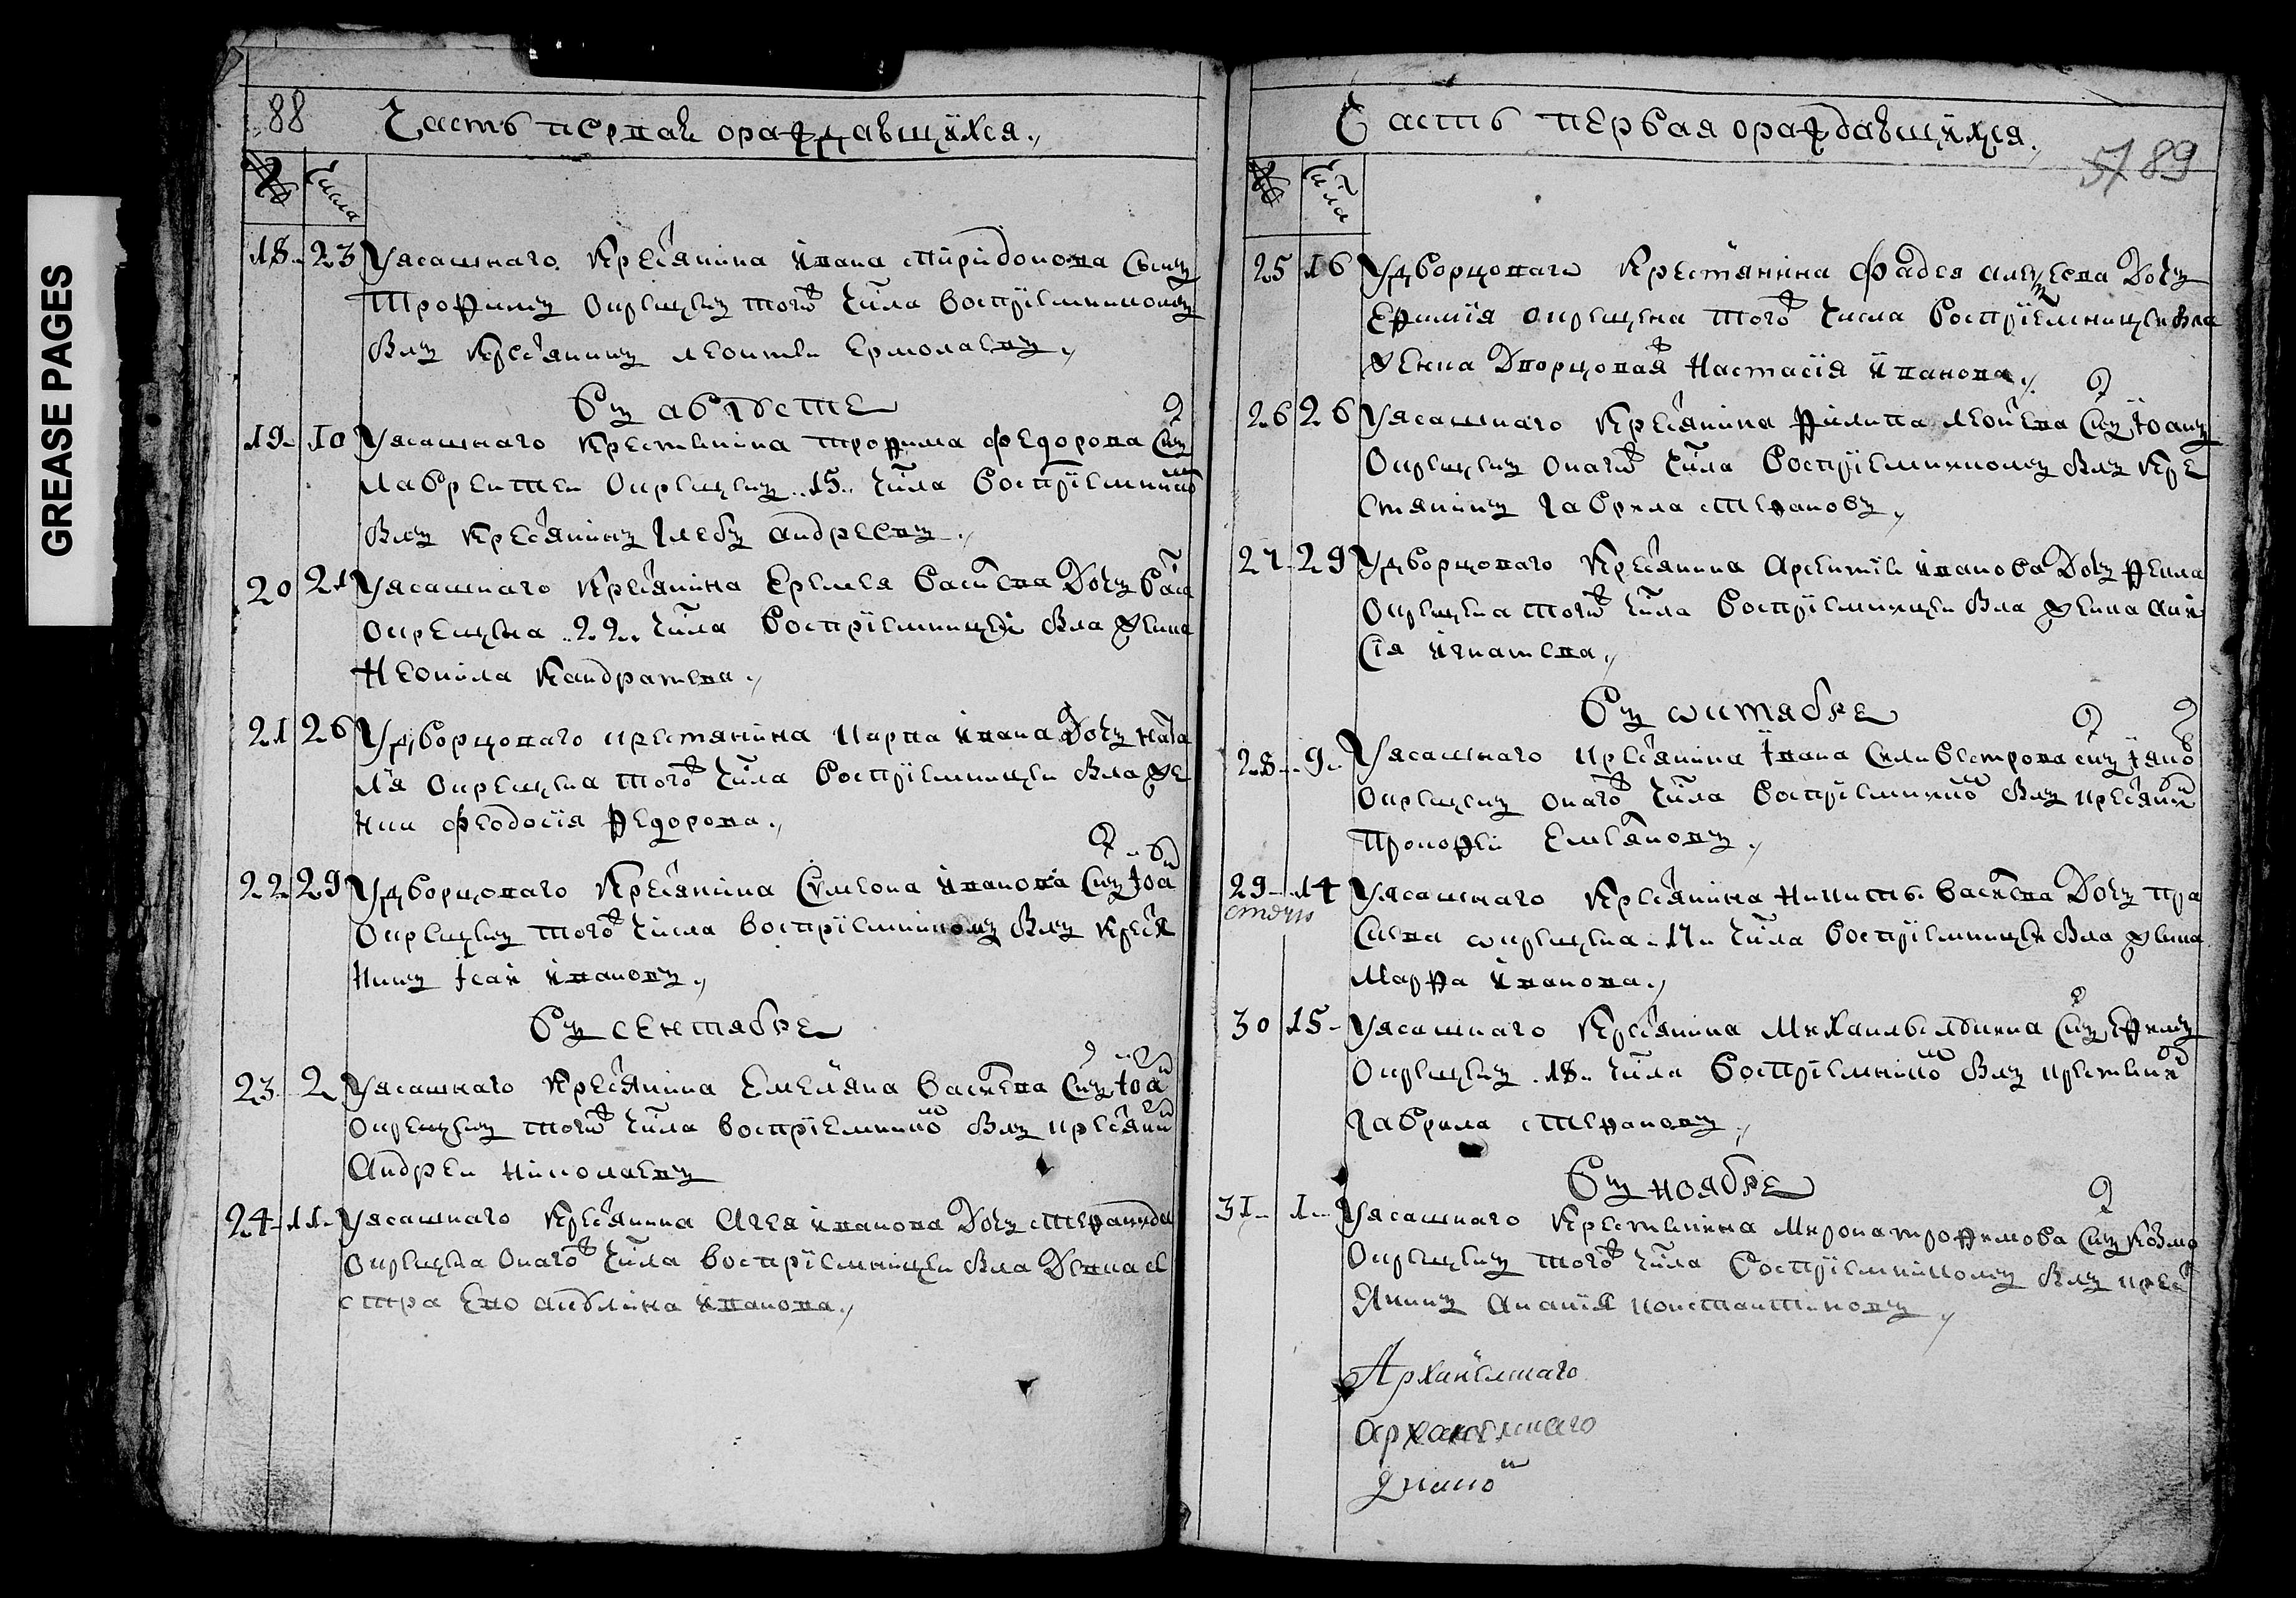 GREASE PAGES
88
Часть первая ораждавшихся
№ Числа
18 23 Уясашнаго крестянина Ивана Спиридонова сынъ
Трофимъ окрещенъ того числа восприемникомъ
былъ крестянинъ Леонтеи Ермолаевъ
Въ августе
19 10 Уясашнаго крестьянина Трофима Федорова снъ
Лаврентеи окрещенъ 15 числа восприемнико
былъ крестянинъ Глебъ Андреевъ
20 21 Уясашнаго крестянина Еремея Василева дочь Васа
окрещена 22 числа восприемницеи была жена
Неонила Кандратева
21 26 Удворцоваго крестянина Карпа Ивана дочь Ната
лья окрещена того числа восприемницеи была же
нка Феодосия Федорова
22 29 Удворцоваго крестянина Сумеона Иванова снъ Иоа
окрещенъ того числа восприемникомъ былъ крестя
нинъ Исаи Ивановъ
Въ сентябре
23 2 Уясашнаго крестянина Емельяна Василева снъ Иоа
окрещенъ того числа восприемнико былъ крестяни
Андреи Николаевъ
24 11 Уясашнаго крестянина Агея Иванова дочь Степанида
окрещена онаго числа восприемницеи была девка се
стра ево Акулина Иванова
Часть первая ораждавшихся
51 89
№ Числа
25 16 Удворцоваго крестьянина Фадея Алексеева дочь
Ефимия окрещена того числа восприемницеи была
женка дворцовая Настасия Иванова
26 26 Уясашнаго крестянина Филипа Леонева снъ Иоанъ
окрещенъ онаго числа восприемникомъ былъ кре
стянинъ Гаврила Степановъ
27 29 Удворцоваго крестянина Арсентия Иванова дочь Фекла
окрещена того числа восприемницеи была женка Ани
сия Игнатева
Въ октябре
28 9 Уясашнаго крестянина Ивана Силивестрова снъ Ияко
окрещенъ онаго числа восприемнико былъ крестяни
Прокофеи Емельяновъ
29 14 Уясашнаго крестянина Никиты Василева дочь Пра
сковя окрещена 17 числа восприемницеи была женка
Марфа Иванова
30 15 Уясашнаго крестянина Михаилы Лукина снъ Ефимъ
окрещенъ 18 числа восприемнико былъ крестьяни
Гаврила Степановъ
Въ ноябре
31 1 Уясашнаго крестьянина Мирона Трофимова снъ Козма
окрещенъ того числа восприемникомъ былъ крест
янинъ Анания Константиновъ
Архангелскаго
архангелскаго